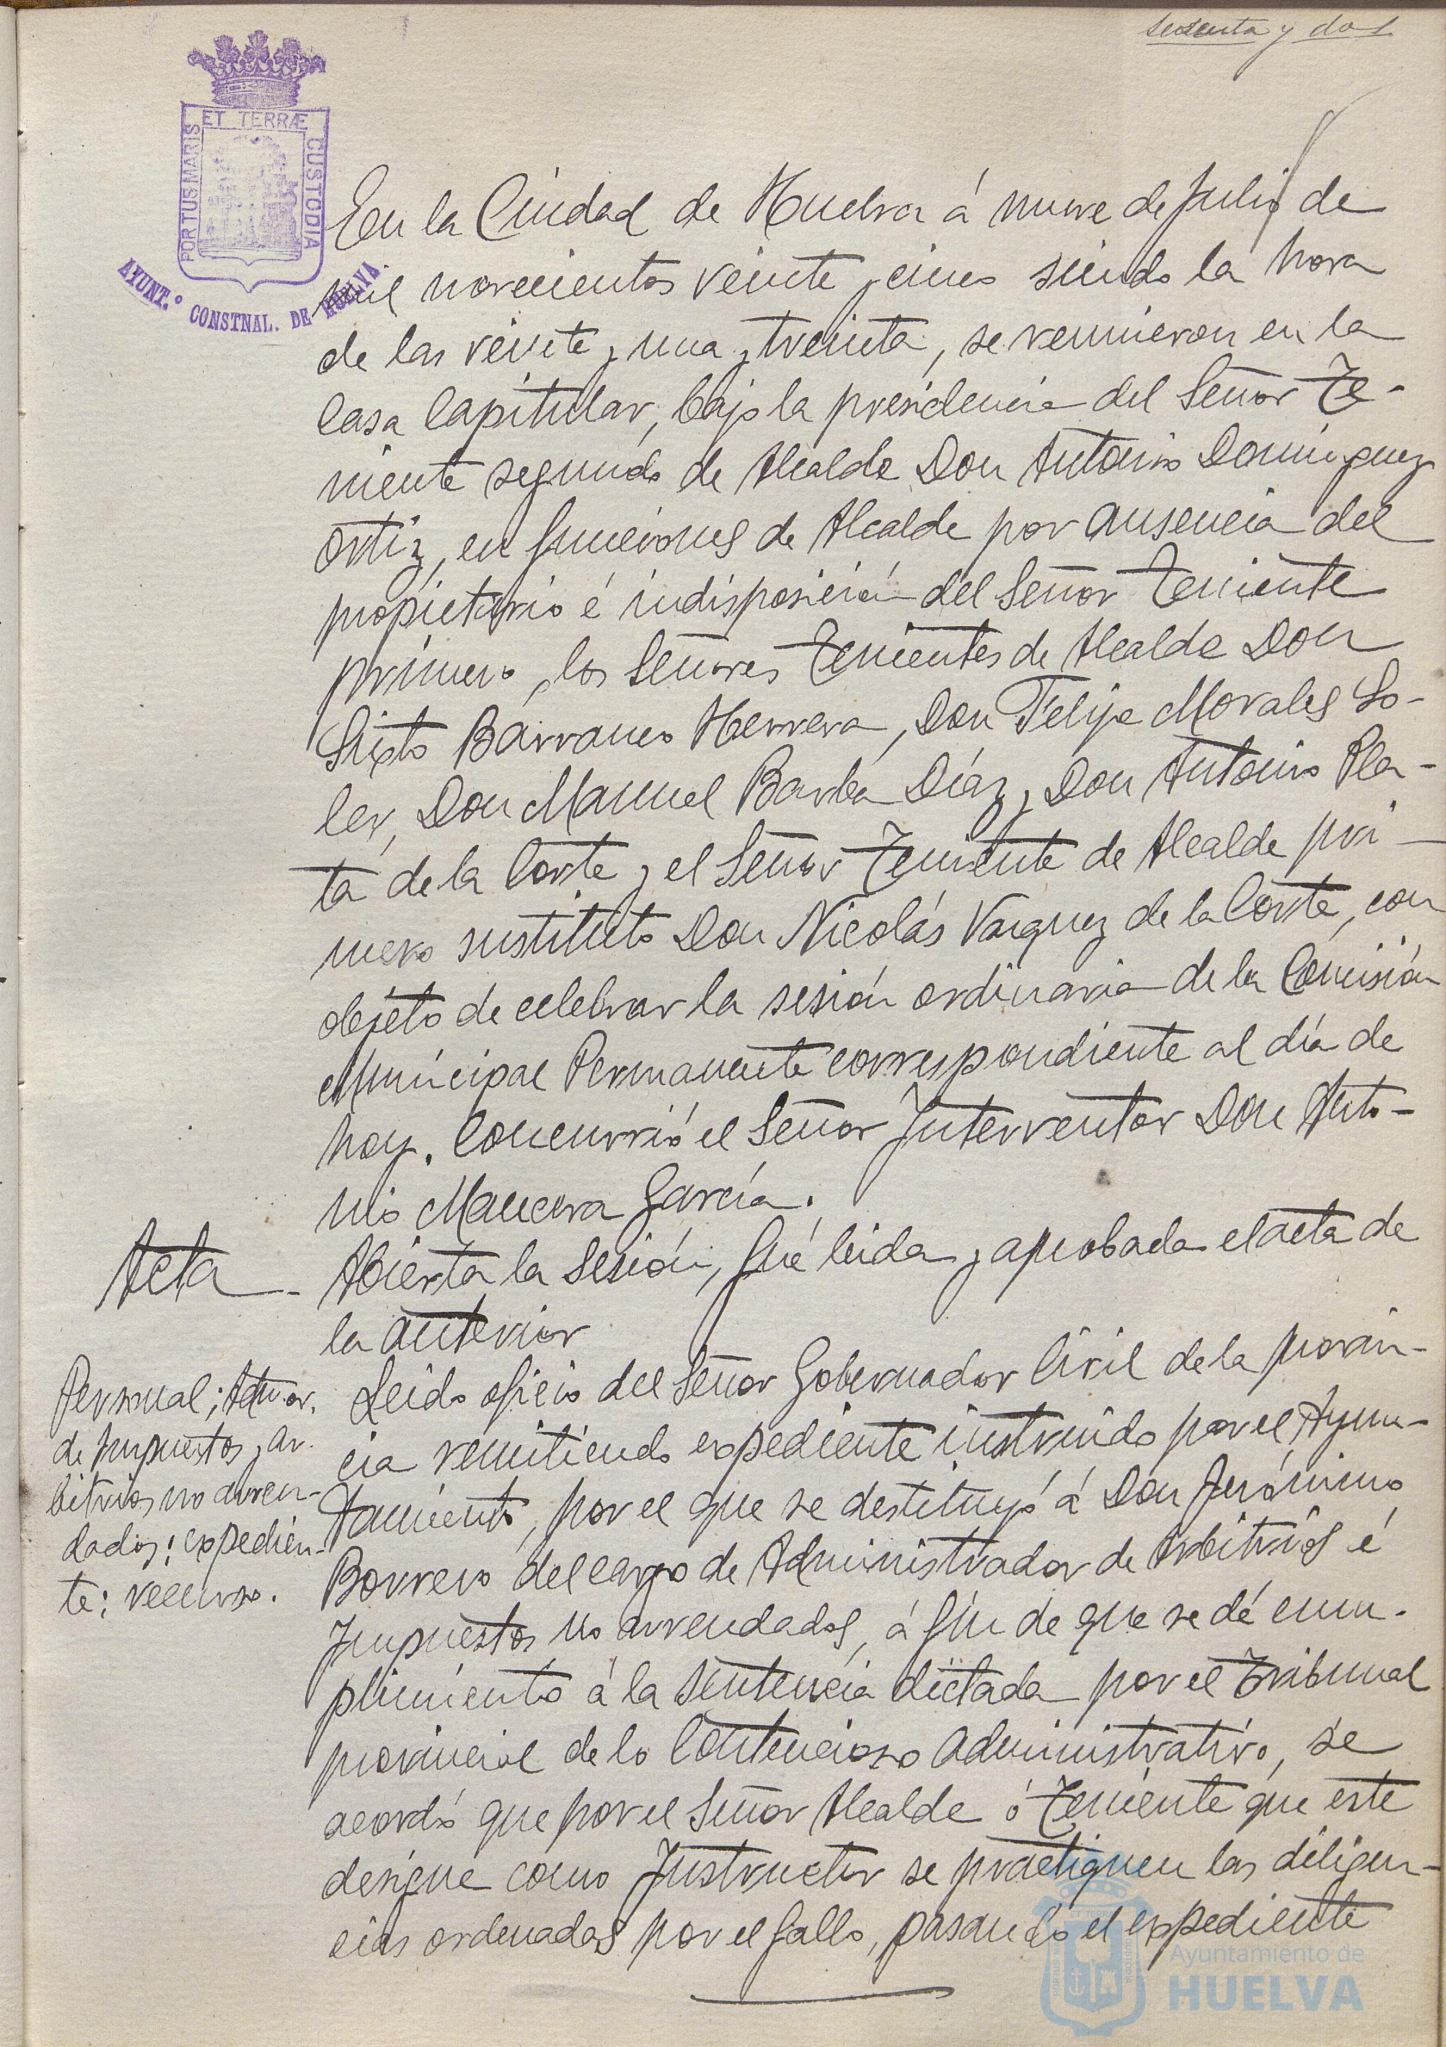 sesenta y dos
PORTUS MARIS ET TERRÆ CUSTODIA
AYUNT.º CONSTNAL. DE HUELVA
En la Ciudad de Huelva á nueve de Julio de
mil novecientos veinte y cinco siendo la hora
de las veinte y una y treinta, se reunieron en la
Casa Capitular, bajo la presidencia del Señor Te-
niente segundo de Alcalde Don Antonio Dominguez
Ortiz, en funciones de Alcalde por ausencia del
propietario é indisposición del Señor Teniente
primero, los Señores Tenientes de Alcalde Don
Sixto Barranco Herrera, Don Felipe Morales So-
ler, Don Manuel Barba Díaz y Don Antonio Pla-
ta de la Corte y el Señor Teniente de Alcalde pri-
mero sustituto Don Nicolás Vazquez de la Corte, con
objeto de celebrar la sesión ordinaria de la Comisión
Municipal Permanente correspondiente al día de
hoy. Concurrió el Señor Interventor Don Anto-
nio Mancera García.
Acta
Abierta la sesión, fué leida y aprobada el acta de
la anterior
Personal; Admor.
de Impuestos y ar-
bitrios no arren-
dados: expedien-
te: recurso.
Leido oficio del Señor Gobernador Civil de la provin-
cia remitiendo expediente instruido por el Ayun-
tamiento, por el que se destituyó á Don Jerónimo
Borrero del cargo de Administrador de Arbitrios é
Impuestos no arrendados, á fin de que se dé cum-
plimiento á la sentencia dictada por el Tribunal
provincial de lo Contencioso Administrativo, se
acordó que por el Señor Alcalde ó Teniente que este
designe como Instructor se practiquen las diligen-
cias ordenadas por el fallo, pasando el expediente
Ayuntamiento de
HUELVA